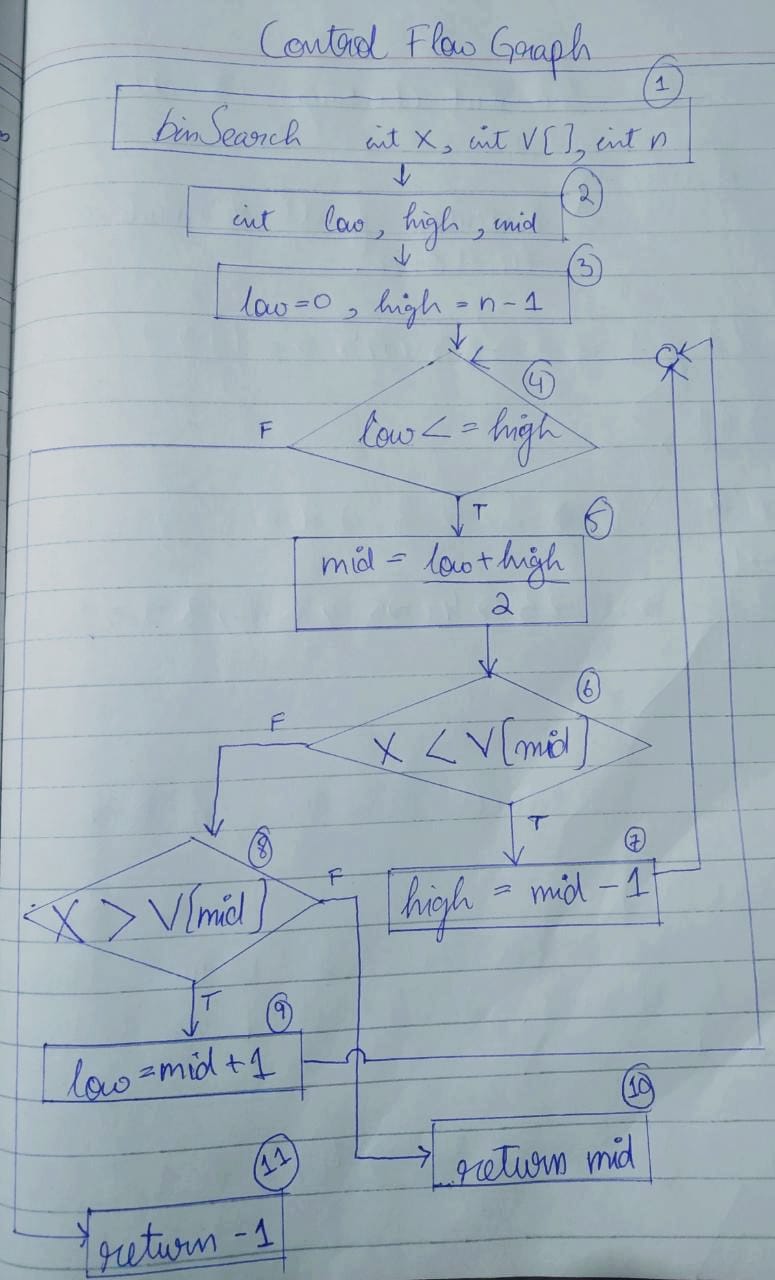 Control Flow Graph
1
binSearch int X, int V[], int n
2
int low, high, mid
3
low=0, high = n-1
4
low <= high
F
T
5
mid = low+high
2
6
X < V[mid]
F
T
7
high = mid - 1
8
X > V[mid]
F
T
9
low=mid+1
10
return mid
11
return -1